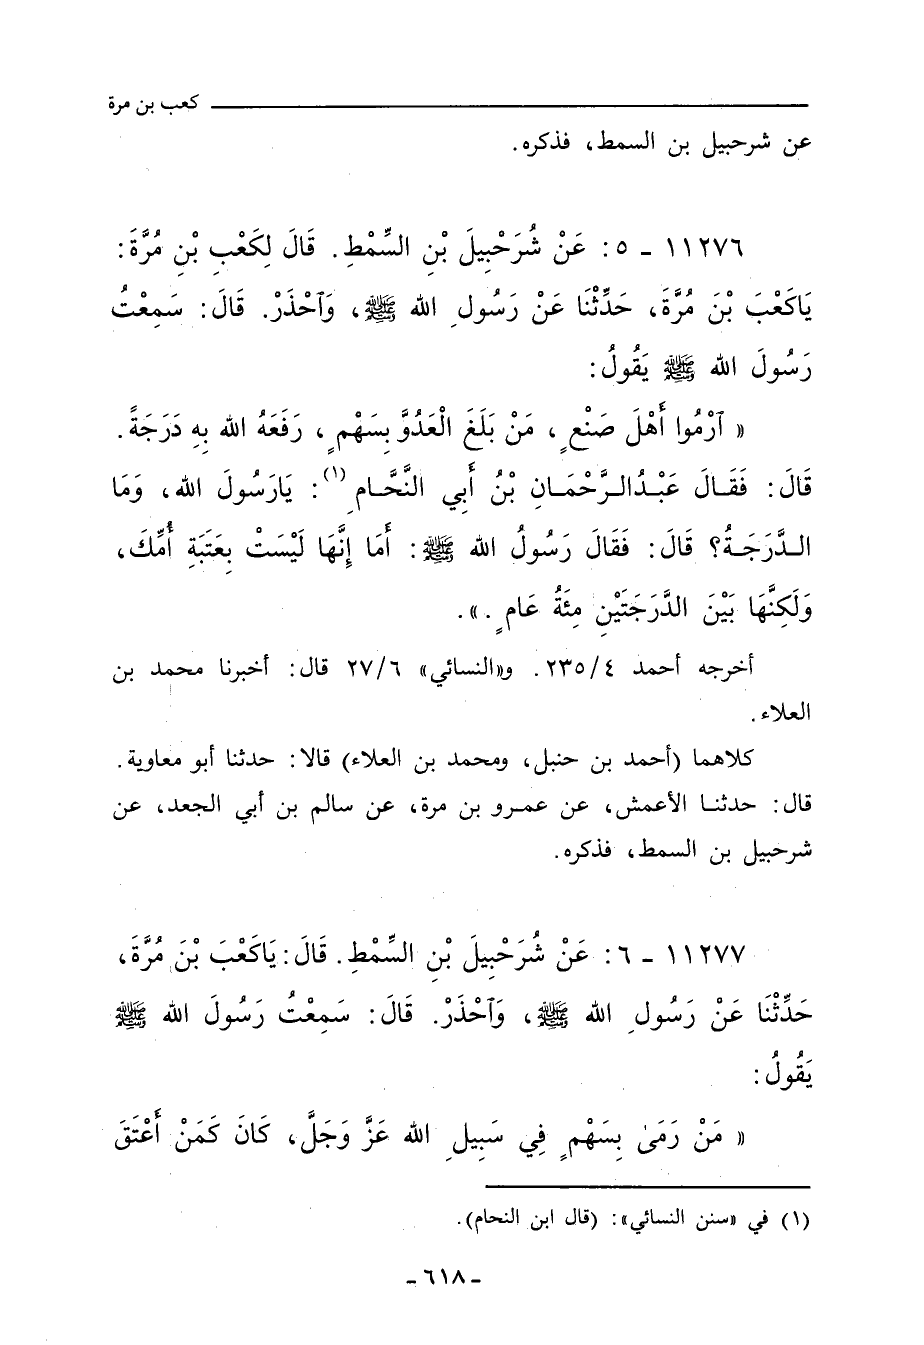 كعب بن مرة
عن شرحبيل بن السمط، فذكره.
١١٢٧٦ - ٥: عَنْ شُرَحْبِيلَ بْنِ السِّمْطِ. قَالَ لِكَعْبِ بْنِ مُرَّةَ:
يَاكَعْبَ بْنَ مُرَّةَ، حَدِّثْنَا عَنْ رَسُولِ الله ﷺ، وَآحْذَرْ. قَالَ: سَمِعْتُ
رَسُولَ الله ﷺ يَقُولُ:
« آرْمُوا أَهْلَ صَنْعٍ، مَنْ بَلَغَ الْعَدُوَّ بِسَهْمٍ، رَفَعَهُ الله بِهِ دَرَجَةً.
قَالَ: فَقَالَ عَبْدُالرَّحْمَانِ بْنُ أَبِي النَّحَّامِ(١): يَارَسُولَ الله، وَمَا
الدَّرَجَةُ؟ قَالَ: فَقَالَ رَسُولُ الله ﷺ: أَمَا إِنَّهَا لَيْسَتْ بِعَتَبَةِ أُمِّكَ،
وَلَكِنَّهَا بَيْنَ الدَّرَجَتَيْنِ مِئَةُ عَامٍ.».
أخرجه أحمد ٤/٢٣٥. و«النسائي» ٦/٢٧ قال: أخبرنا محمد بن
العلاء.
كلاهما (أحمد بن حنبل، ومحمد بن العلاء) قالا: حدثنا أبو معاوية.
قال: حدثنا الأعمش، عن عمرو بن مرة، عن سالم بن أبي الجعد، عن
شرحبيل بن السمط، فذكره.
١١٢٧٧ - ٦: عَنْ شُرَحْبِيلَ بْنِ السِّمْطِ. قَالَ: يَاكَعْبَ بْنَ مُرَّةَ،
حَدِّثْنَا عَنْ رَسُولِ الله ﷺ، وَآحْذَرْ. قَالَ: سَمِعْتُ رَسُولَ الله ﷺ
يَقُولُ:
« مَنْ رَمَىٰ بِسَهْمٍ فِي سَبِيلِ الله عَزَّ وَجَلَّ، كَانَ كَمَنْ أَعْتَقَ
(١) في «سنن النسائي»: (قال ابن النحام).
- ٦١٨ -